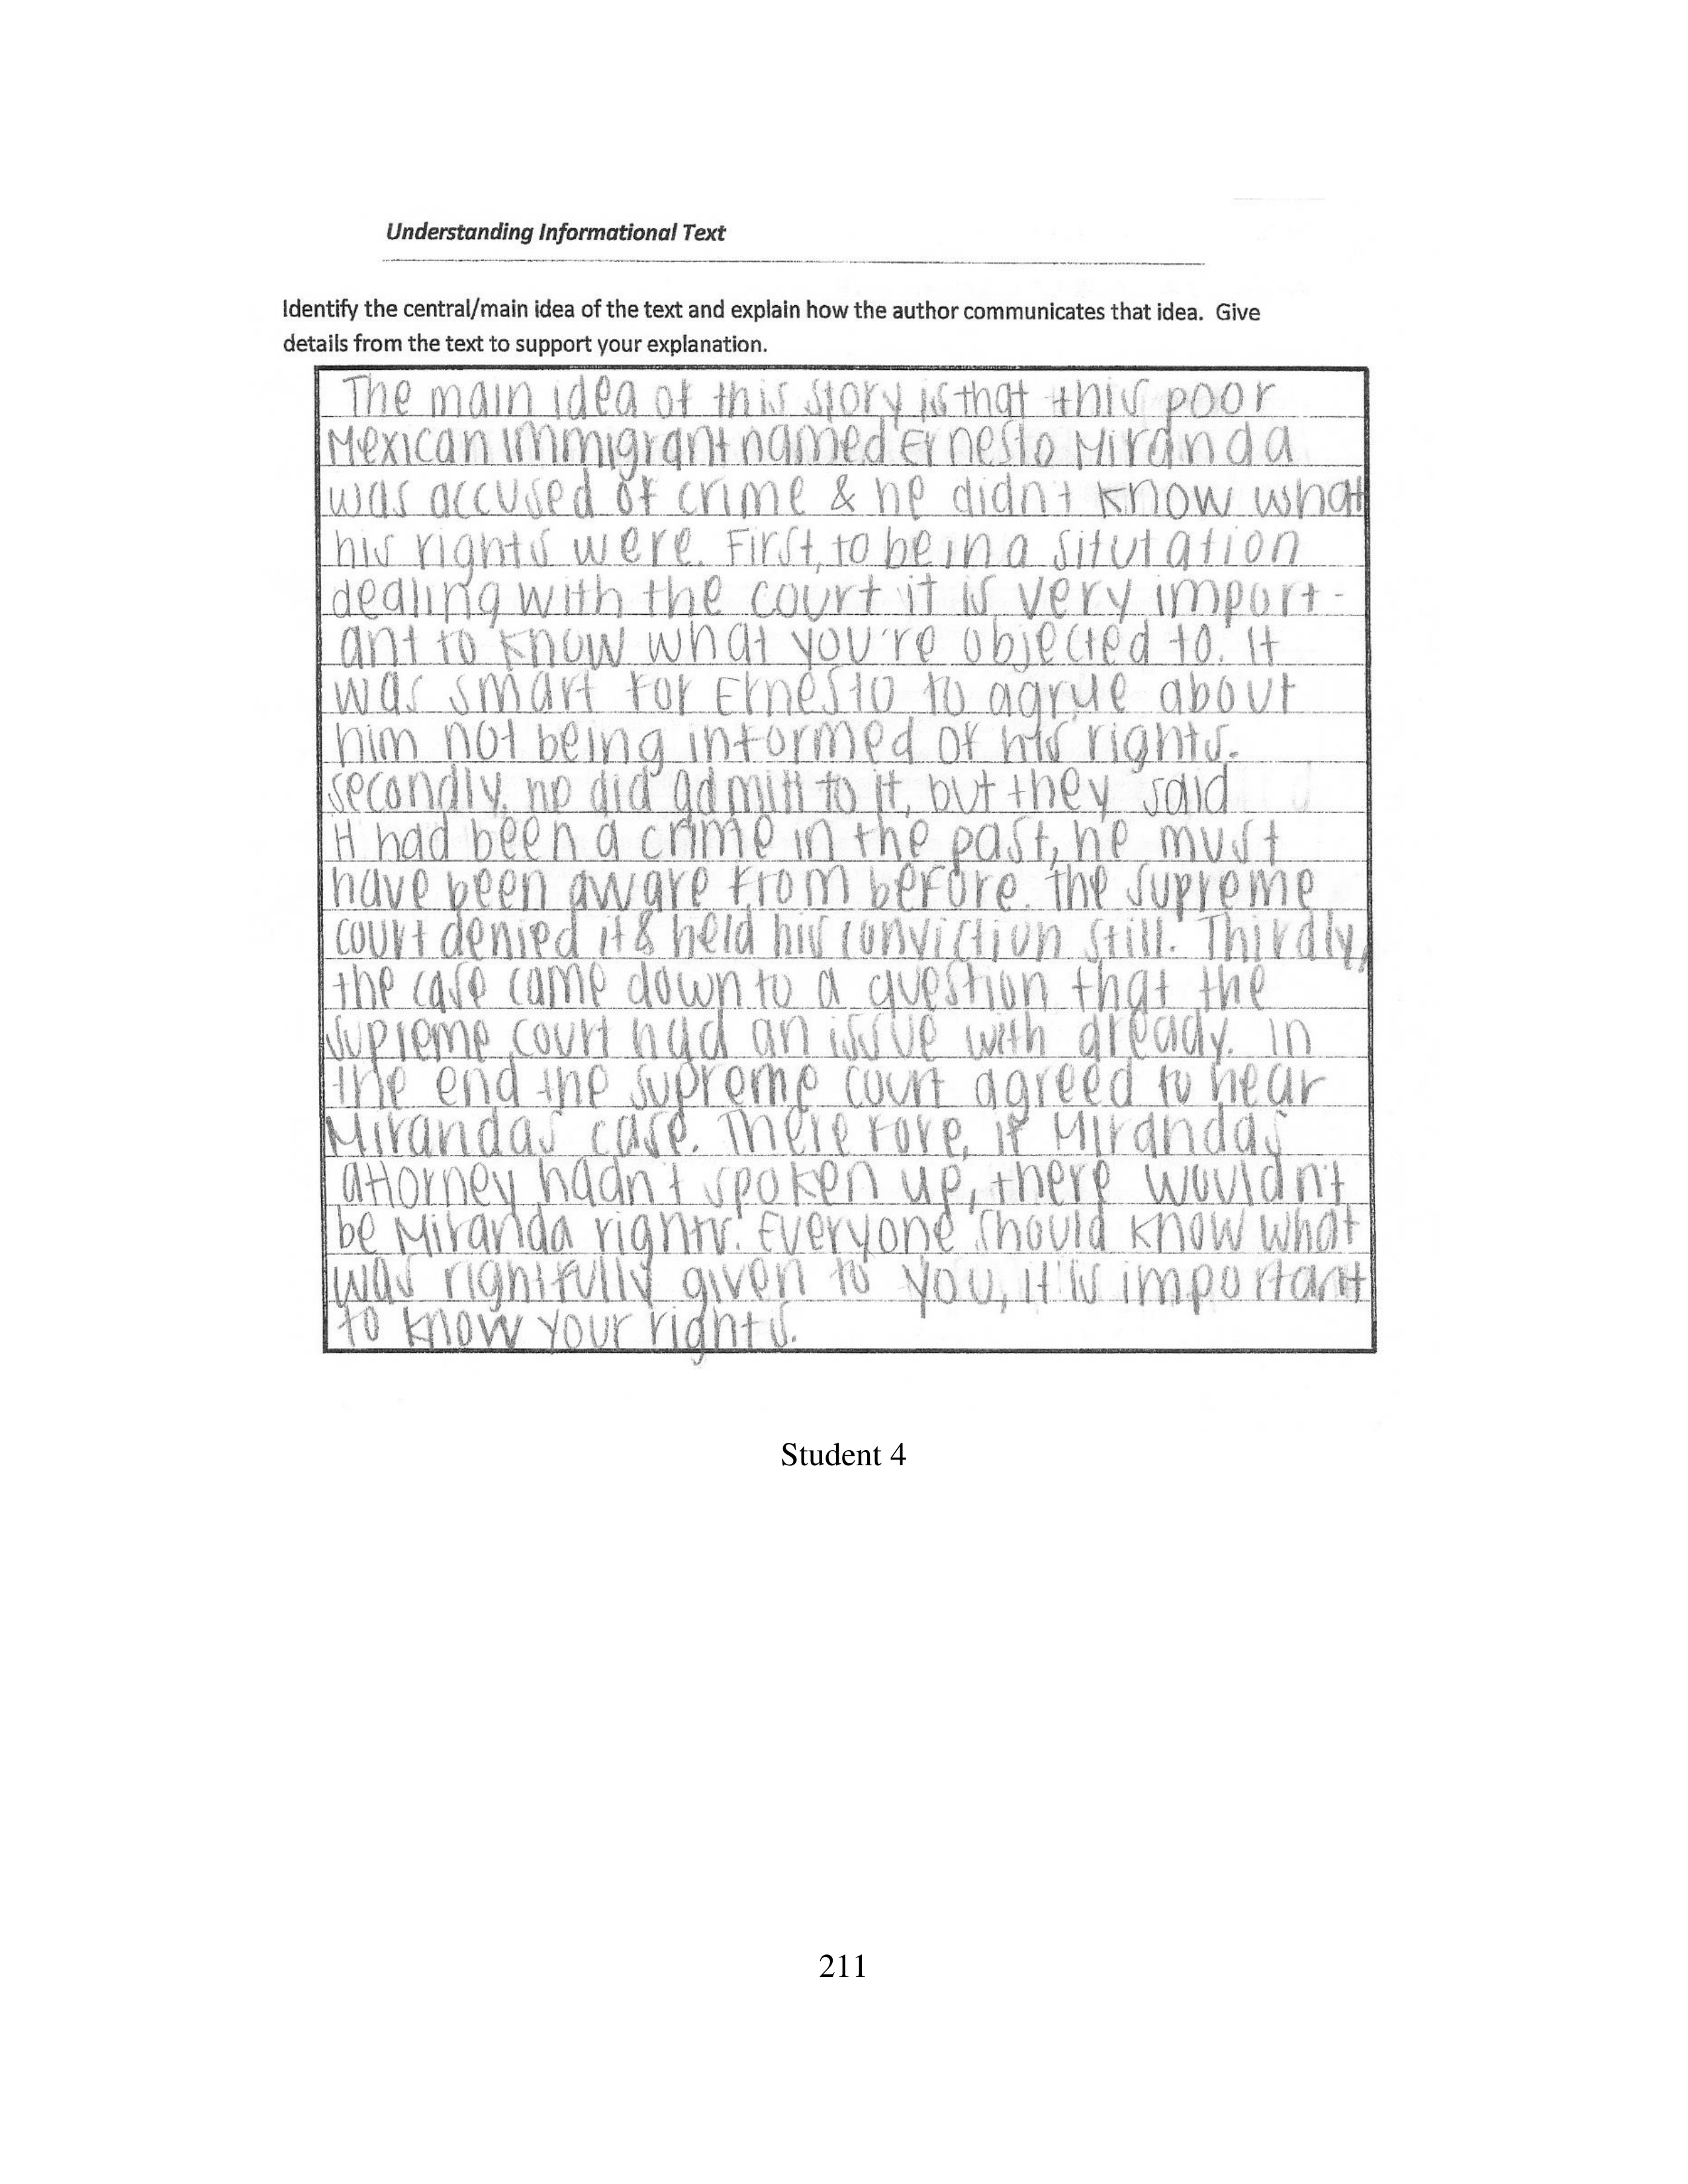 Understanding Informational Text
Identify the central/main idea of the text and explain how the author communicates that idea. Give
details from the text to support your explanation.
The main idea of this story is that this poor
Mexican immigrant named Ernesto Miranda
was accused of crime & he didn't know what
his rights were. First, to be in a situtation
dealing with the court it is very import-
ant to know what you're objected to. It
was smart for Ernesto to agrue about
him not being informed of his rights.
secondly, he did admitt to it, but they said
it had been a crime in the past, he must
have been aware from before. the supreme
court denied it & held his conviction still. Thirdly,
the case came down to a question that the
supreme court had an issue with already. In
the end the supreme court agreed to hear
Mirandas case. Therefore, if Mirandas
attorney hadn't spoken up, there wouldn't
be Miranda rights. Everyone should know what
was rightfully given to you, it is important
to know your rights.
Student 4
211